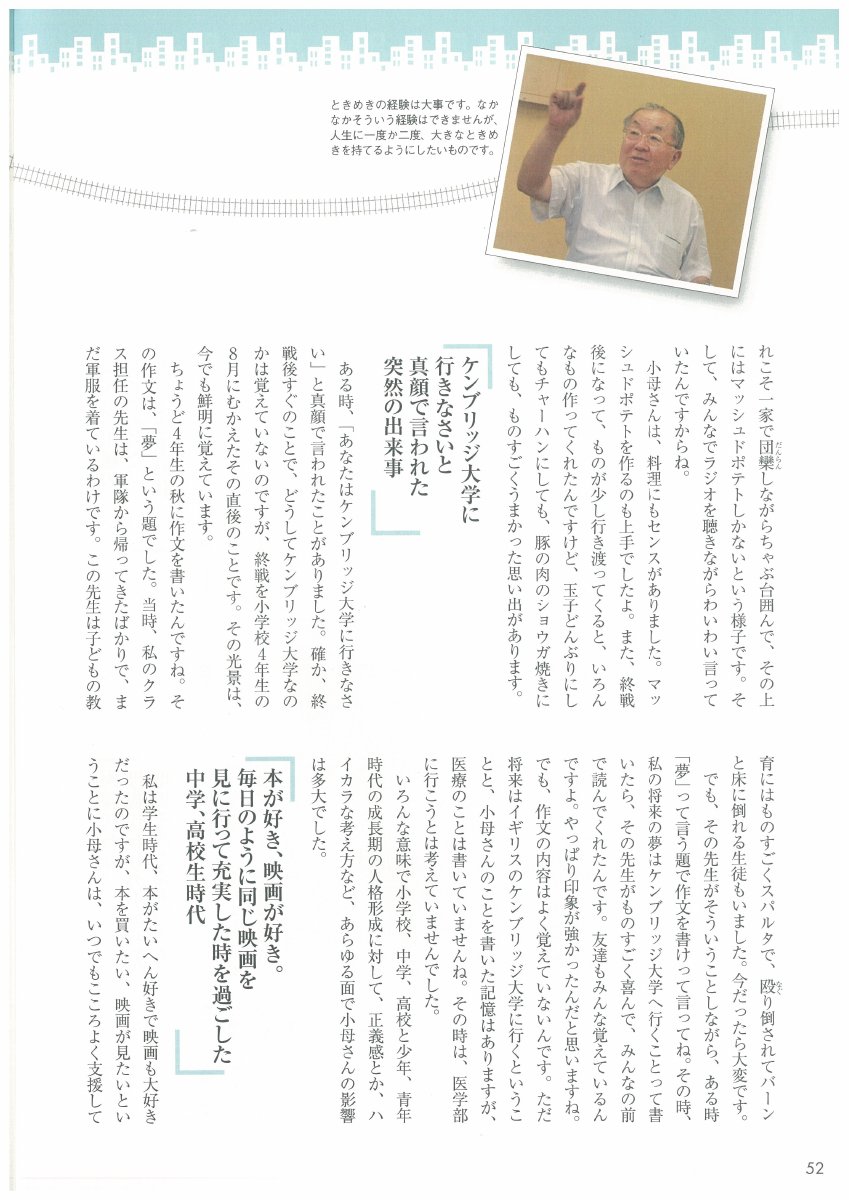 ときめきの経験は大事です。なか
なかそういう経験はできませんが、
人生に一度か二度、大きなときめ
きを持てるようにしたいものです。
れこそ一家で団欒しながらちゃぶ台囲んで、その上
だんらん
にはマッシュドポテトしかないという様子です。そ
して、みんなでラジオを聴きながらわいわい言って
いたんですからね。
小母さんは、料理にもセンスがありました。マッ
シュドポテトを作るのも上手でしたよ。また、終戦
後になって、ものが少し行き渡ってくると、いろん
なもの作ってくれたんですけど、玉子どんぶりにし
てもチャーハンにしても、豚の肉のショウガ焼きに
しても、ものすごくうまかった思い出があります。
ケンブリッジ大学に
行きなさいと
真顔で言われた
突然の出来事
ある時、「あなたはケンブリッジ大学に行きなさ
い」と真顔で言われたことがありました。確か、終
戦後すぐのことで、どうしてケンブリッジ大学なの
かは覚えていないのですが、終戦を小学校4年生の
8月にむかえたその直後のことです。その光景は、
今でも鮮明に覚えています。
ちょうど4年生の秋に作文を書いたんですね。そ
の作文は、「夢」という題でした。当時、私のクラ
ス担任の先生は、軍隊から帰ってきたばかりで、ま
だ軍服を着ているわけです。この先生は子どもの教
育にはものすごくスパルタで、殴り倒されてバーン
なぐ
と床に倒れる生徒もいました。今だったら大変です。
でも、その先生がそういうことしながら、ある時
「夢」って言う題で作文を書けって言ってね。その時、
私の将来の夢はケンブリッジ大学へ行くことって書
いたら、その先生がものすごく喜んで、みんなの前
で読んでくれたんです。友達もみんな覚えているん
ですよ。やっぱり印象が強かったんだと思いますね。
でも、作文の内容はよく覚えていないんです。ただ
将来はイギリスのケンブリッジ大学に行くというこ
とと、小母さんのことを書いた記憶はありますが、
医療のことは書いていませんね。その時は、医学部
に行こうとは考えていませんでした。
いろんな意味で小学校、中学、高校と少年、青年
時代の成長期の人格形成に対して、正義感とか、ハ
イカラな考え方など、あらゆる面で小母さんの影響
は多大でした。
本が好き、映画が好き。
毎日のように同じ映画を
見に行って充実した時を過ごした
中学、高校生時代
私は学生時代、本がたいへん好きで映画も大好き
だったのですが、本を買いたい、映画が見たいとい
うことに小母さんは、いつでもこころよく支援して
52